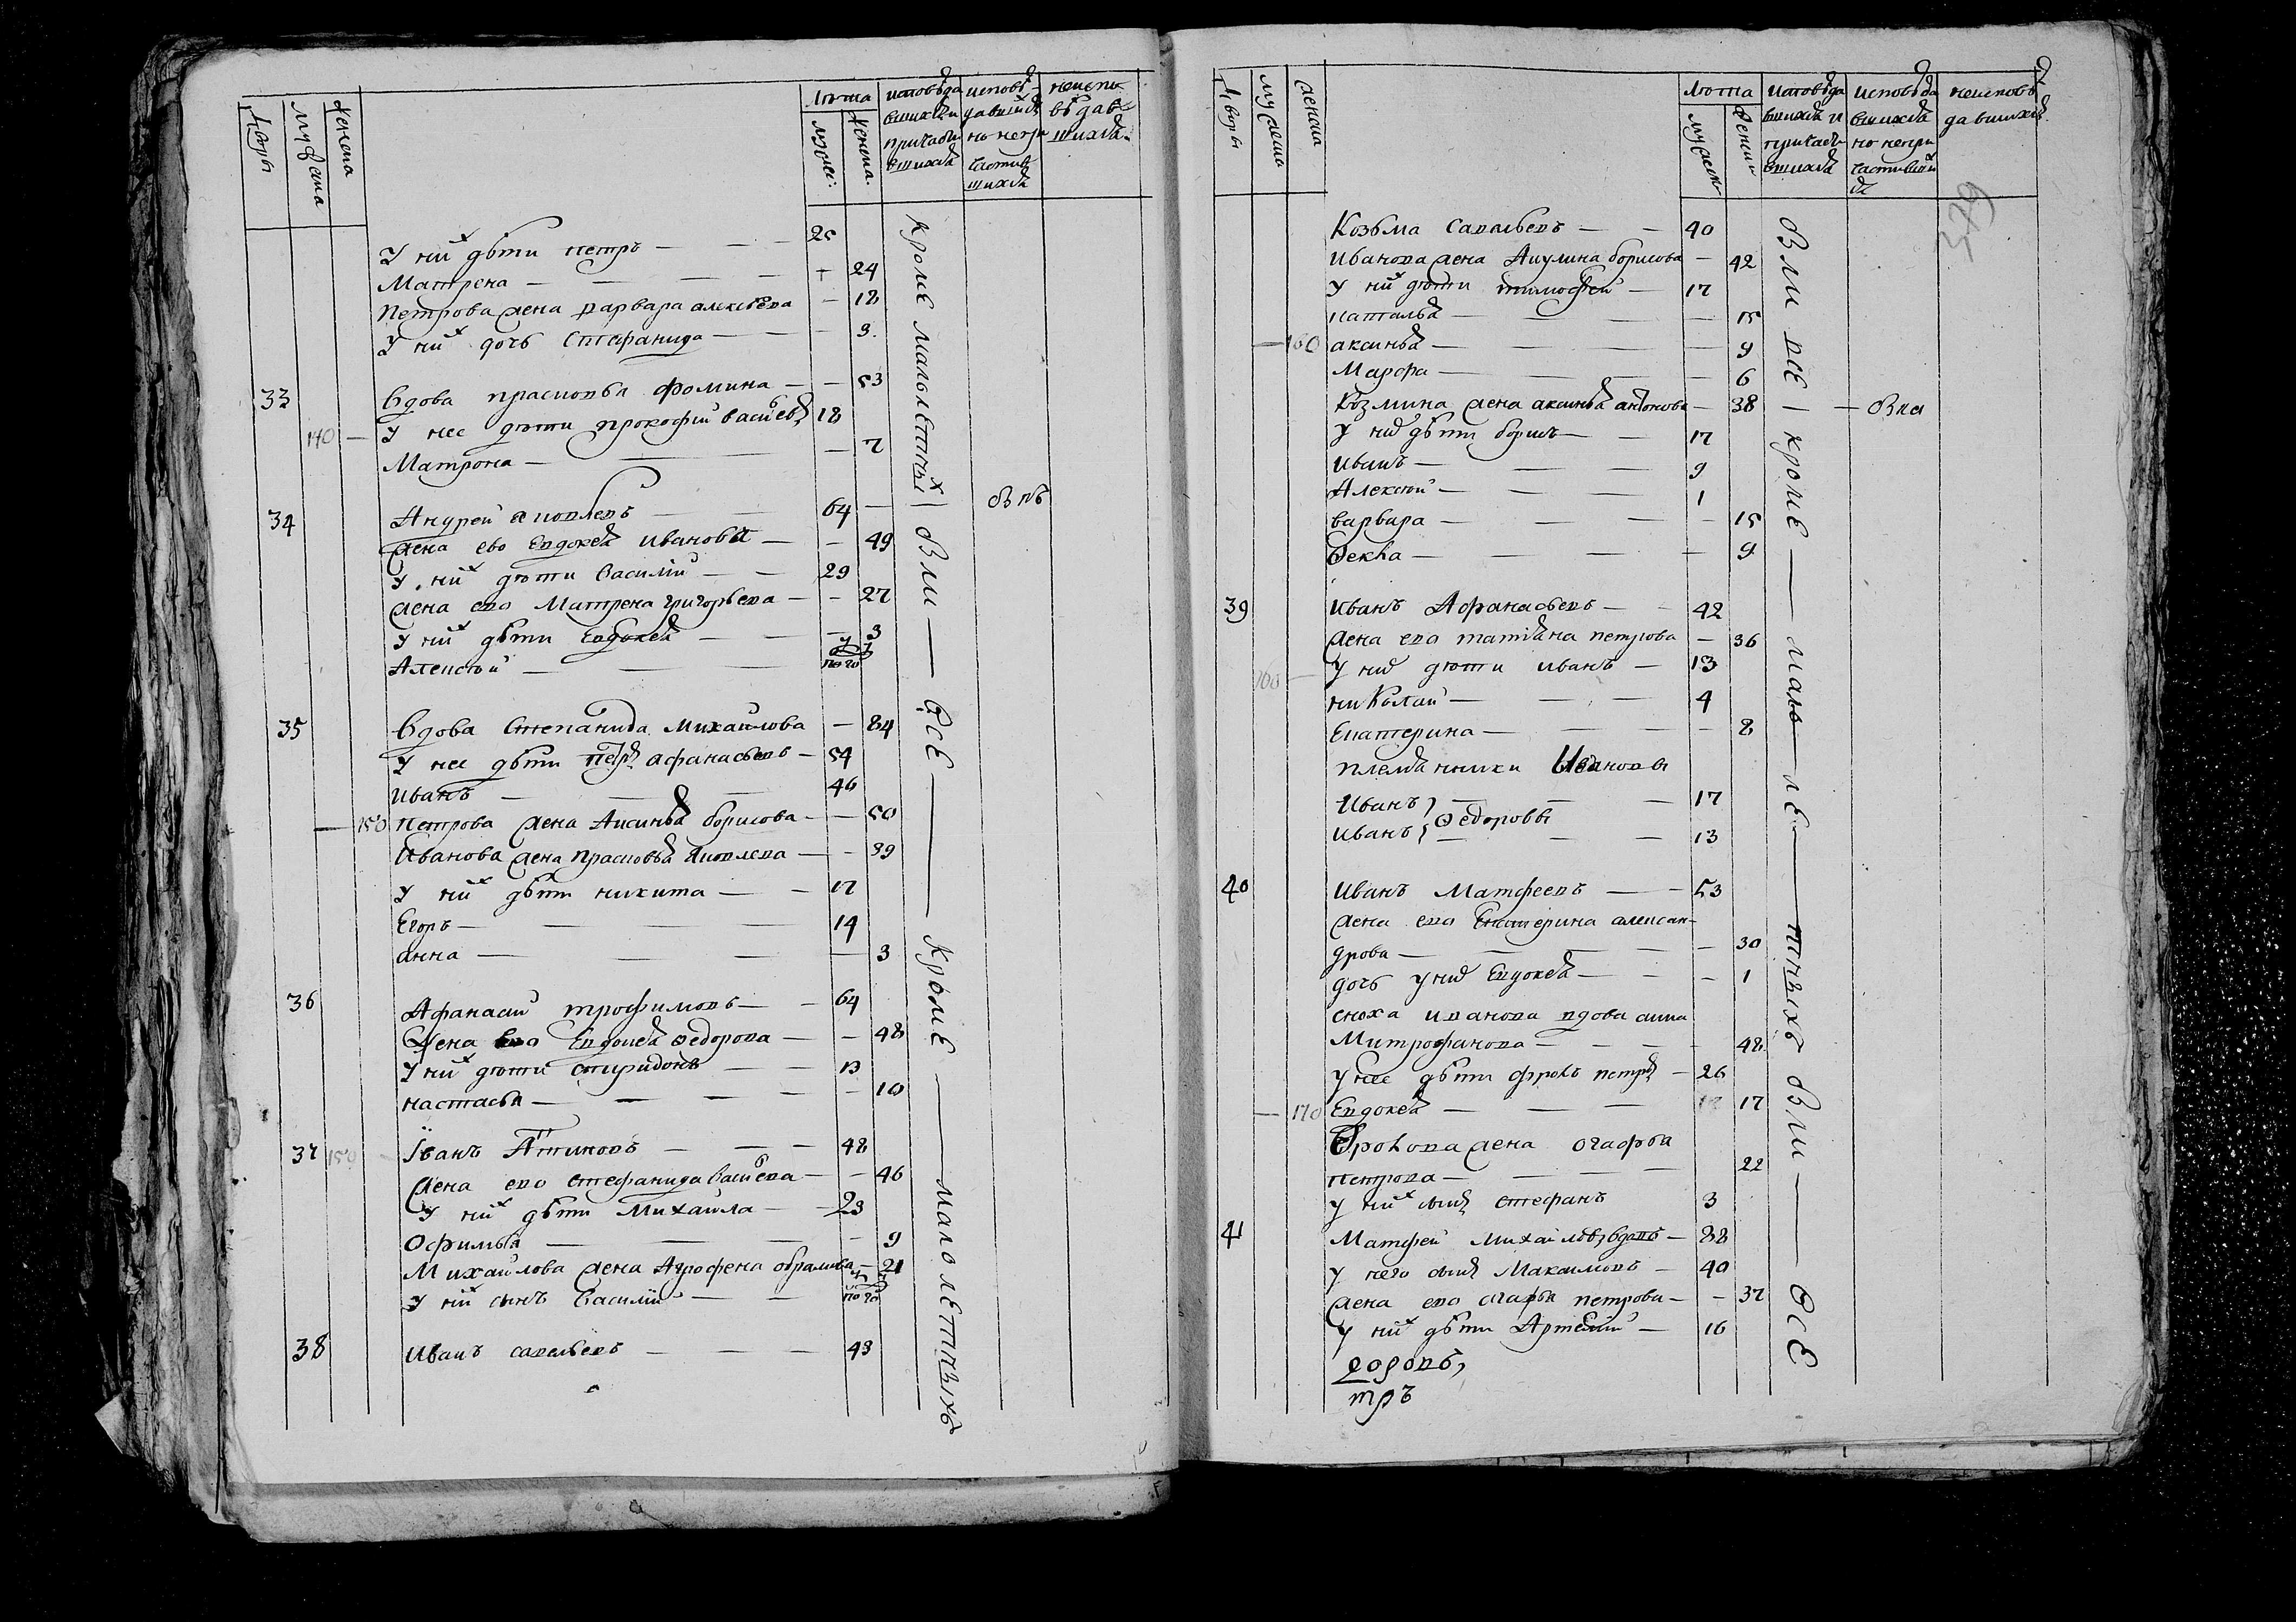 Дворы мужска женска Лѣта мужес: женска. исповѣда вшихся и причасти вшихся исповѣ давшихся но непри частив шихся неиспо вѣдав шихся
У них дѣти петръ — — — 25
Матрена — — — 24
Петрова жена варвара алексѣева — 18
У них дочь Стефанида — — 3.
33 Вдова прасковья фомина — — 53
140 — У нее дѣти прокофій васильев 18
Матрона — — — 7
34 Андрей яковлевъ — — 64 —
жена ево Евдокея ивановa — — 49
У них дѣти Василій — — 29
жена ево Матрена григорьева — — 27
У них дѣти Евдокея — — — 3
Алексѣй — — по го
35 Вдова Степанида Михаилова — 84
У нее дѣти петръ афанасьевъ — 54
Иванъ — — — 46
— 150 Петрова жена Аксинья борисова — — 50
Иванова жена прасковья яковлева — — 39
У них дѣти никита — — 17
Егоръ — — — 14
анна — — — — 3
36 Афанасий трофимовъ — — 64
Жена ево Евдокея ѳедорова — — 48
У них дѣти спиридонъ — — 13
настасья — — — — 10
37 150 Іванъ — — — 48
Жена ево стефанида васильева — — 46
У них дѣти Михаила — — 23
Офимья — — — 9
Михаилова жена Агрофена — 21
У них сынъ Василій — — по го
38 Иванъ савельевъ — — — 43
кроме малолѣтных вли — Все — кроме — малолетныхъ
влѣ
Дворы мужска женска Лѣта мужска женски исповѣда вшихся и причасти вшихся исповѣда вшихся но непри частивших ся неисповѣ давшихся
379
Козьма Савельевъ — — 40
Иванова жена Акулина борисова — 42
У них дѣти тимофей — 17
наталья — — — — 15
— 160 аксинья — — — 9
Марфа — — — — 6
Козмина жена аксинья антонова — 38 — — вла
У них дѣти борисъ — — 17
Иванъ — — — 9
Алексѣй — — — 1
варвара — — — — 15
Ѳекла — — — — 9
39 Иванъ Афанасьевъ — — 42
жена ево татияна петрова — 36
160 — У них дѣти иванъ — 13
николай — — — 4
Екатерина — — — — 8
племянники Ивановы
Иванъ } — — — 17
Ѳедоровы
Иванъ } — — — 13
40 Иванъ Матфеевъ — — 53
жена ево Екатерина алексан-
дрова — — — — 30
дочь у них Евдокея — — — 1
сноха иванова вдова анна
Митрофанова — — — — 48
У нее дѣти фролъ петров — 26
— 170 Евдокея — — — 17
Фролова жена огафья
петрова — — — 22
У них сынъ стефанъ 3
41 Матфей михаиловъ вдовъ — 88
У него сынъ Максимовъ — 40
жена ево огафья петрова — — 37
У них дѣти Артемий — 16
родовъ,
тръ
Вли все кроме — мало — ле — тныхъ вли — Все